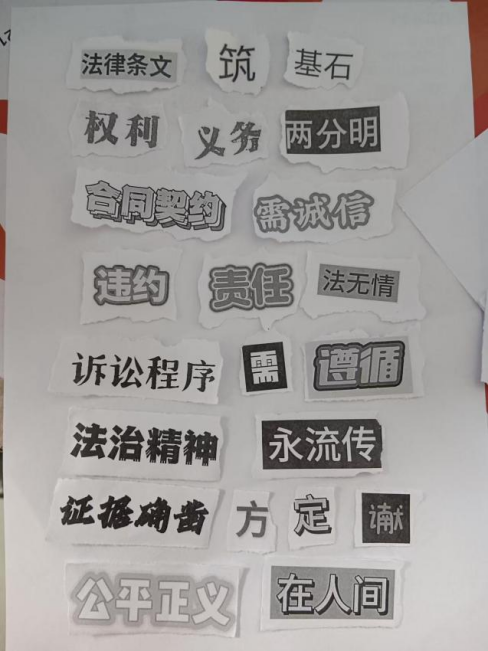 法律条文 筑 基石
权利 义务 两分明
合同契约 需诚信
违约 责任 法无情
诉讼程序 需 遵循
法治精神 永流传
证据确凿 方 定 谳
公平正义 在人间